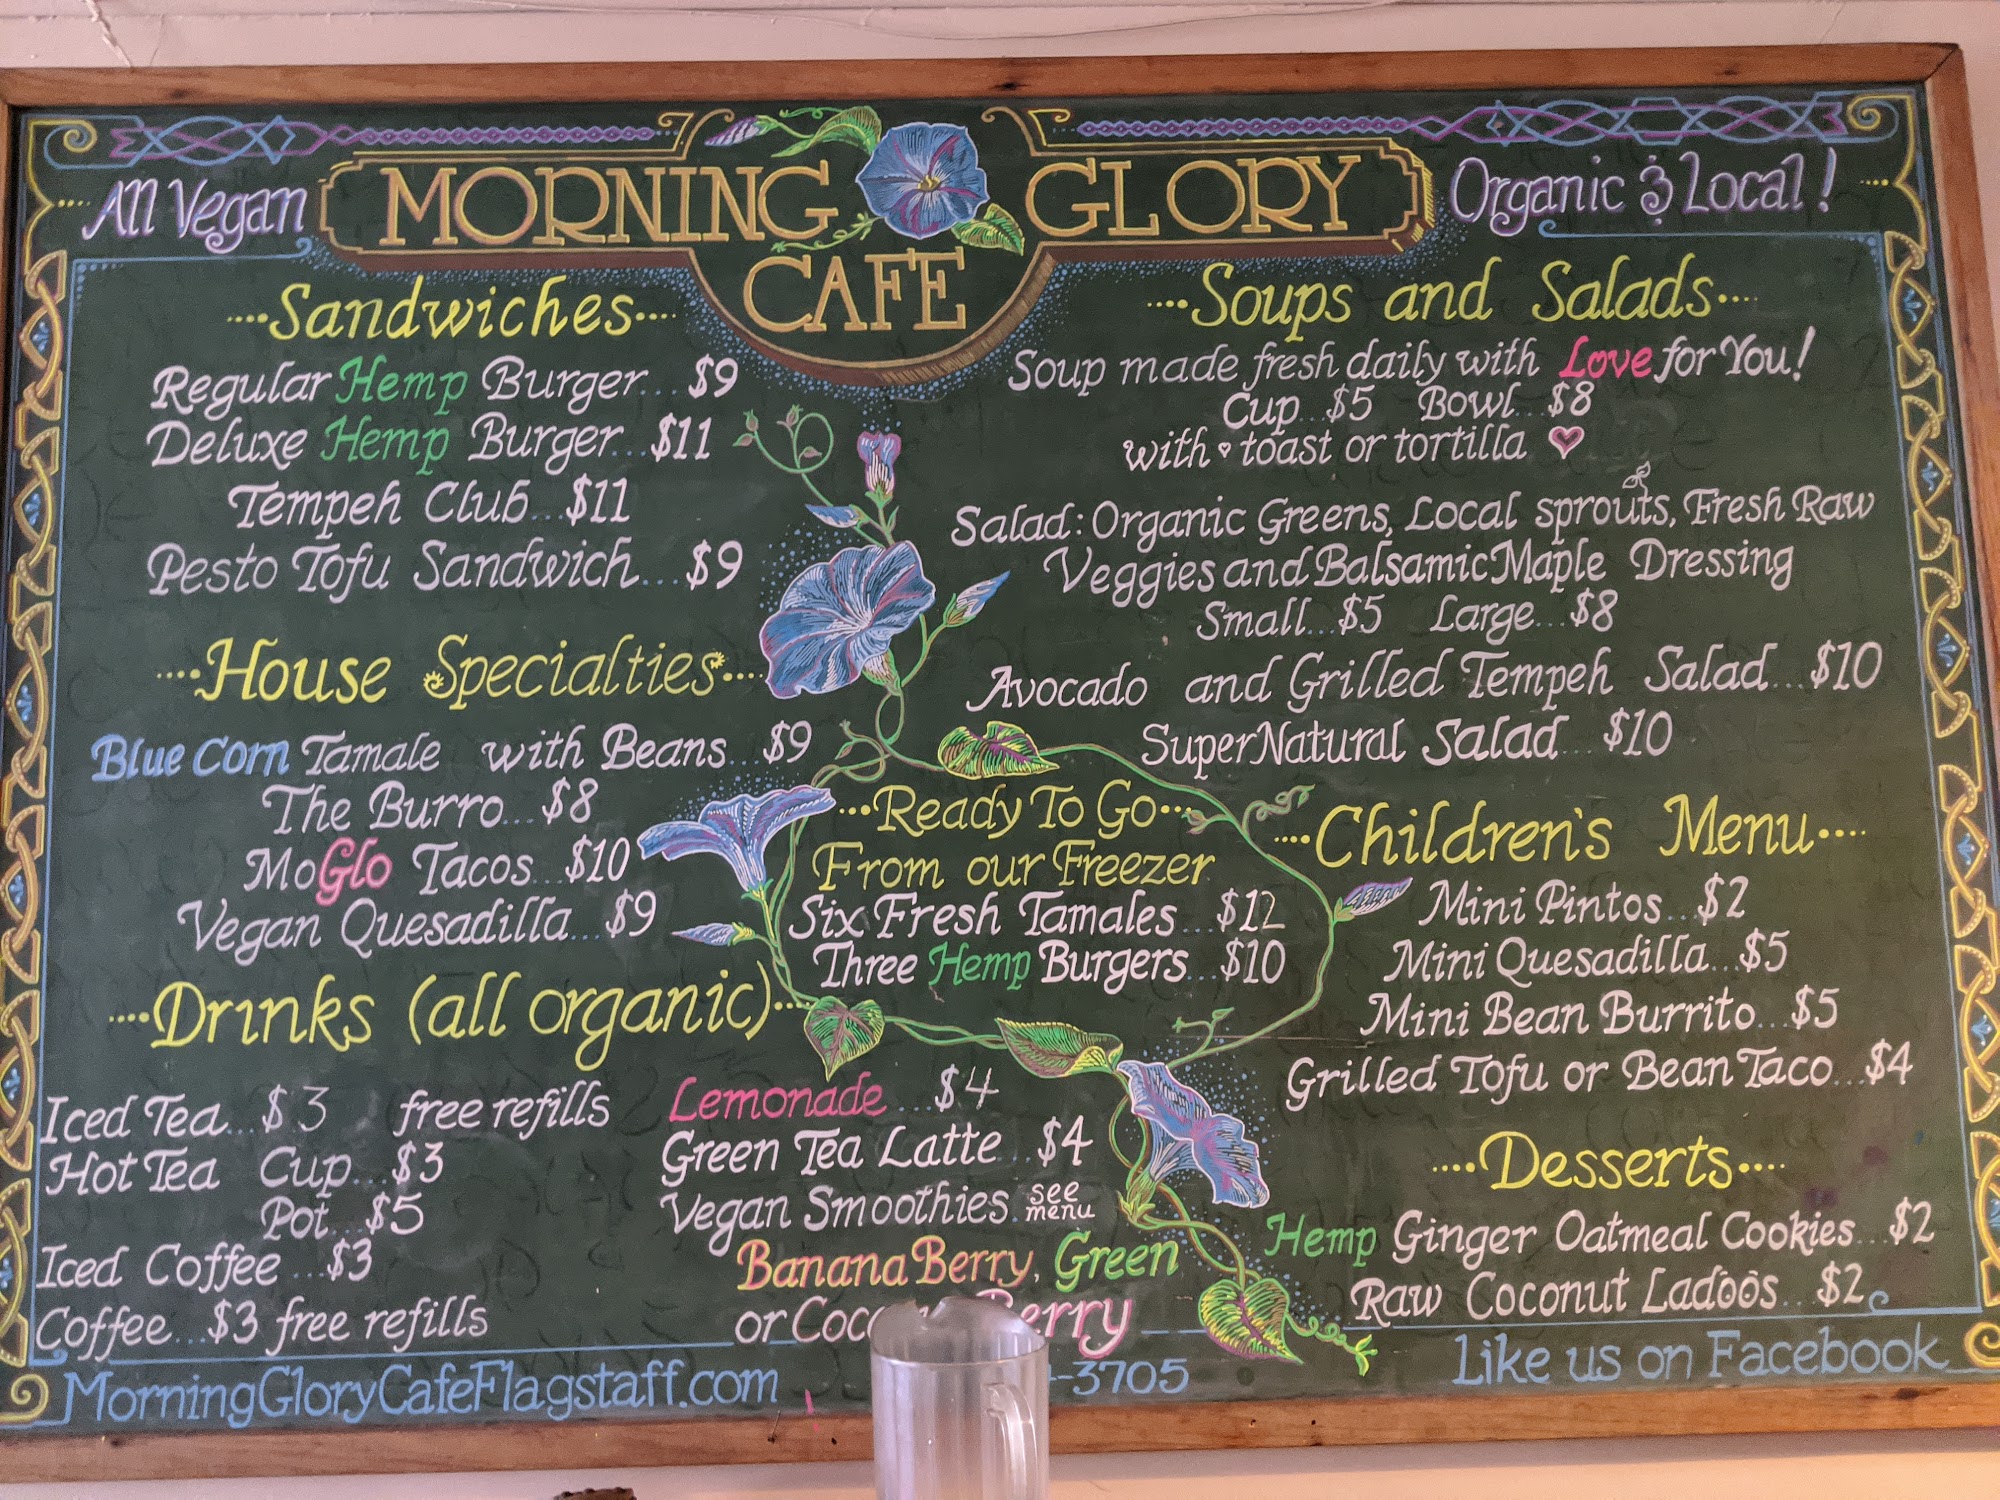 All Vegan
MORNING GLORY
CAFE
Organic & Local!
Sandwiches
Regular Hemp Burger... $9
Deluxe Hemp Burger... $11
Tempeh Club... $11
Pesto Tofu Sandwich... $9
House Specialties
Blue Corn Tamale with Beans... $9
The Burro... $8
MoGlo Tacos... $10
Vegan Quesadilla... $9
Drinks (all organic)
Iced Tea... $3 free refills
Hot Tea Cup... $3
Pot... $5
Iced Coffee... $3
Coffee... $3 free refills
Lemonade... $4
Green Tea Latte... $4
Vegan Smoothies... see menu
Banana Berry, Green
or Berry
Ready To Go
From our Freezer
Six Fresh Tamales... $12
Three Hemp Burgers... $10
Soups and Salads
Soup made fresh daily with Love for You!
Cup... $5 Bowl... $8
with toast or tortilla
Salad: Organic Greens, Local sprouts, Fresh Raw
Veggies and Balsamic Maple Dressing
Small... $5 Large... $8
Avocado and Grilled Tempeh Salad... $10
SuperNatural Salad... $10
Children's Menu
Mini Pintos... $2
Mini Quesadilla... $5
Mini Bean Burrito... $5
Grilled Tofu or Bean Taco... $4
Desserts
Hemp Ginger Oatmeal Cookies... $2
Raw Coconut Ladōōs... $2
MorningGloryCafeFlagstaff.com
-3705
Like us on Facebook